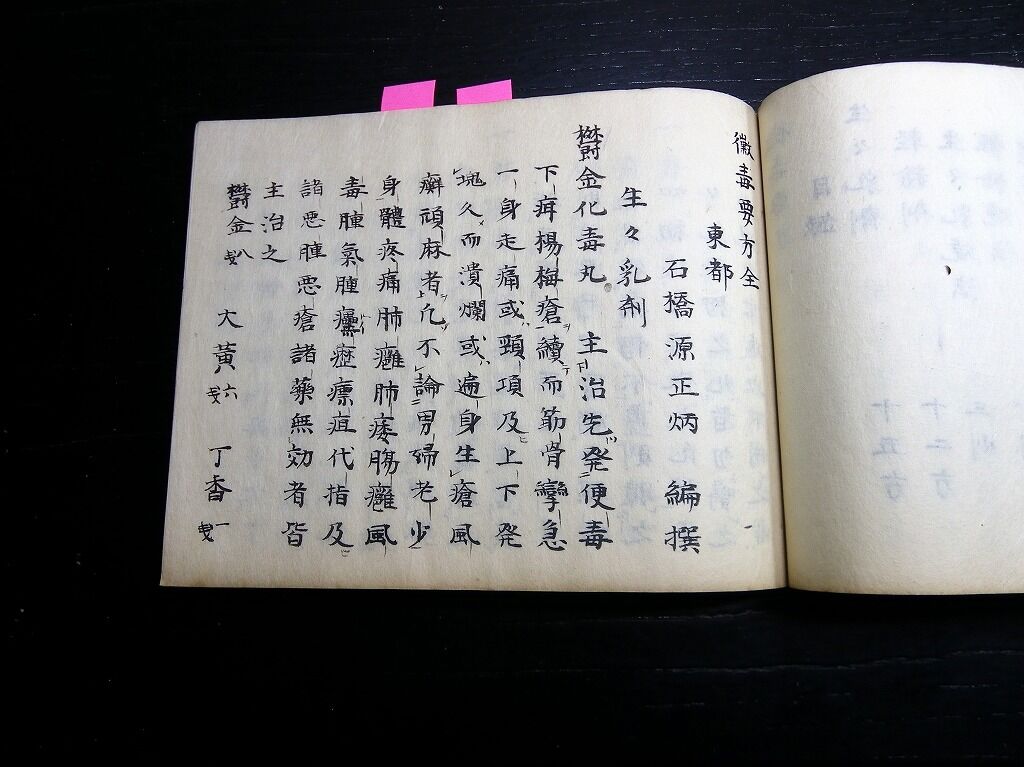 黴毒要方全
東都
石橋源正炳 編撰
生々乳剤
欝金化毒丸 主治先発便毒
下疳楊梅瘡續而筋骨攣急
一身走痛或頸項及上下発
塊久而潰爛或遍身生瘡風
癬頑麻者凢不論男婦老少
身體疼痛肺癰肺痿腸癰風
毒腫氣腫癰瘰癧疽代指及
諸悪腫悪瘡諸藥無効者皆
主治之
欝金 八 大黄 六 丁香 一